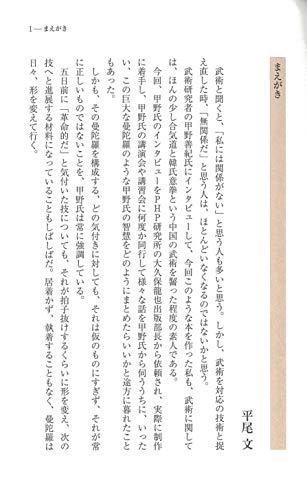 I—まえがき
まえがき
平尾 文
武術と聞くと、「私には関係がない」と思う人も多いと思う。しかし、武術を対応の技術と捉
え直した時、「無関係だ」と思う人は、ほとんどいなくなるのではないかと思う。
武術研究者の甲野善紀氏にインタビューして、今回このような本を作った私も、武術に関して
は、ほんの少し合気道と韓氏意拳という中国の武術を齧った程度の素人である。
甲野氏へのインタビューをPHP研究所の大久保龍也出版部長から依頼され、実際に制作
に着手し、甲野氏の講演会や講習会に何度か同行して様々な話を甲野氏から伺ううちに、いった
い、この巨大な曼陀羅のような甲野氏の智慧をどのようにまとめたらいいかと途方に暮れたこと
もあった。
しかも、その曼陀羅を構成する、どの気付きに対しても、それは仮のものにすぎず、それが常
に正しいものではないことを、甲野氏は常に強調している。
五日前に「革命的だ」と気付いた技についても、それが拍子抜けするくらいに形を変え、次の
技へと進展する材料になっていることもしばしばだ。居着かず、執着することもなく、曼陀羅は
日々、形を変えて行く。